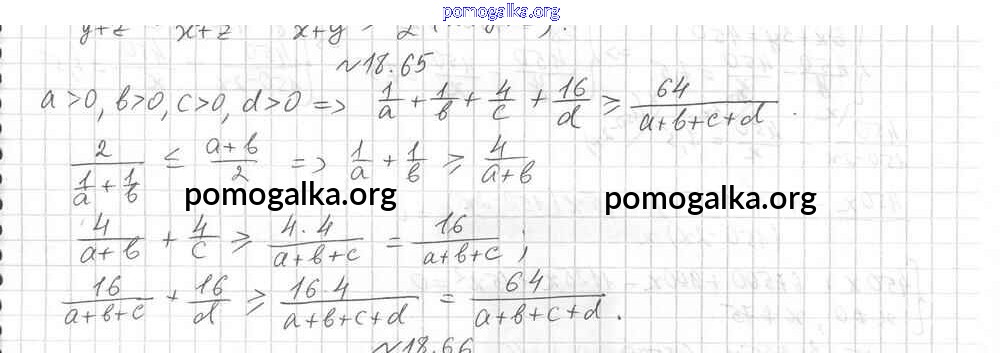 pomogalka.org
y+z x+z x+y 2
~18.65
a>0, b>0, c>0, d>0 => 1/a + 1/b + 4/c + 16/d ≥ 64/(a+b+c+d).
2/(1/a + 1/b) ≤ (a+b)/2 => 1/a + 1/b ≥ 4/(a+b)
pomogalka.org pomogalka.org
4/(a+b) + 4/c ≥ 4·4/(a+b+c) = 16/(a+b+c);
16/(a+b+c) + 16/d ≥ 16·4/(a+b+c+d) = 64/(a+b+c+d).
~18.66